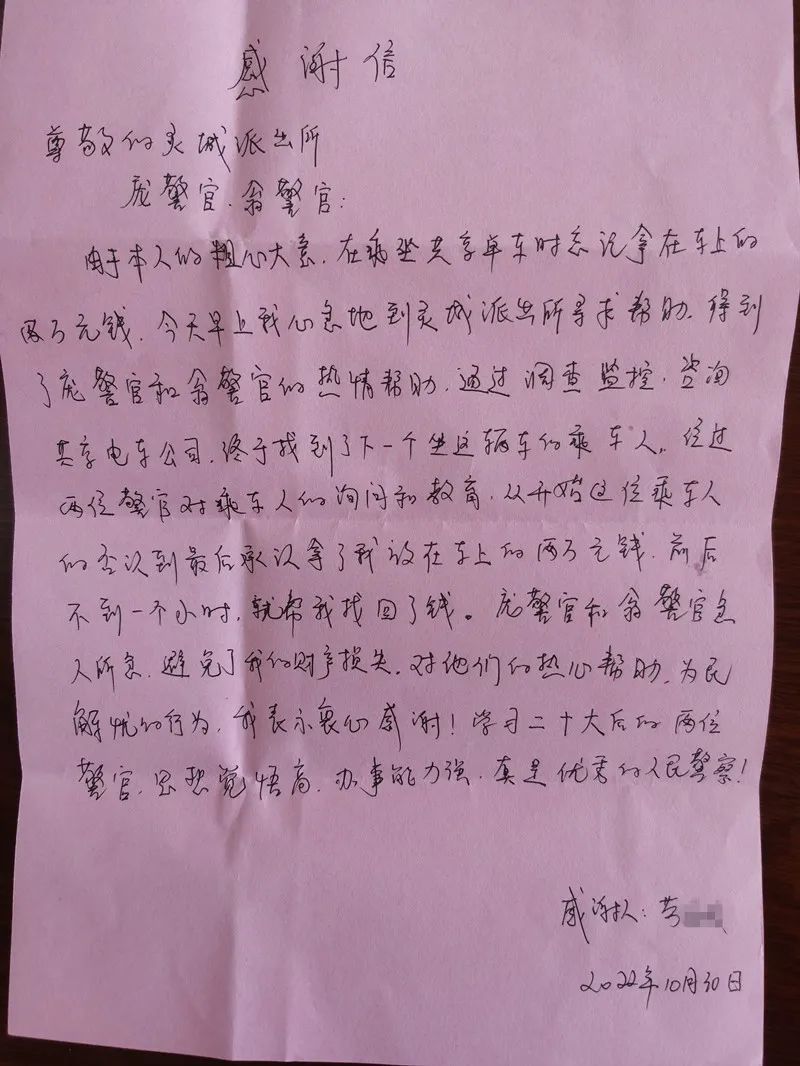 感谢信
尊敬的灵城派出所
庞警官、翁警官:
由于本人的粗心大意,在乘坐共享单车时忘记拿在车上的
两万元钱,今天早上我心急地到灵城派出所寻求帮助,得到
了庞警官和翁警官的热情帮助,通过调查监控,咨询
共享电车公司,终于找到了下一个坐这辆车的乘车人。经过
两位警官对乘车人的询问和教育,从开始这位乘车人
的否认到最后承认拿了我放在车上的两万元钱,前后
不到一个小时,就帮我找回了钱。庞警官和翁警官急
人所急,避免了我的财产损失,对他们的热心帮助,为民
解忧的行为,我表示衷心感谢!学习二十大后的两位
警官,思想觉悟高,办事能力强,真是优秀的人民警察!
感谢人:
2022年10月30日